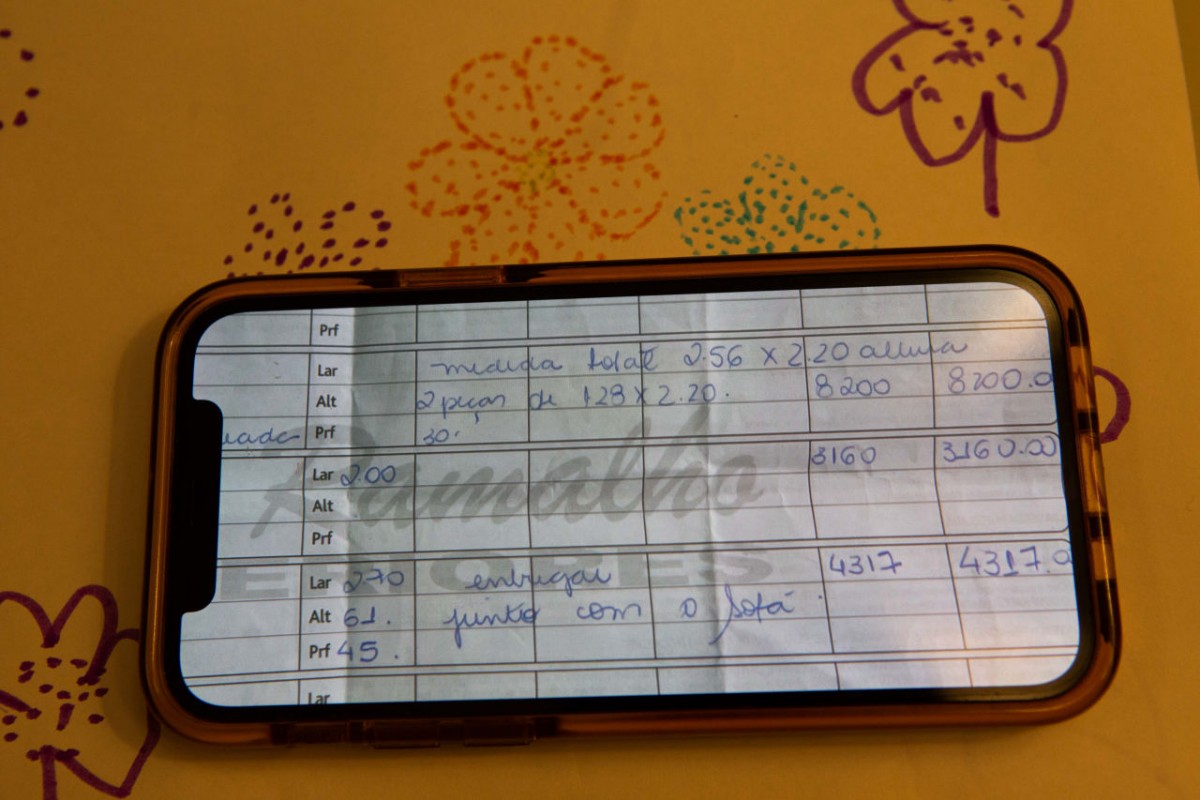 Prf
Lar medida total 2.56 x 2.20 altura
Alt 2 peças de 128 x 2.20. 8200 8200.0
Prf 30.
Ramalho
Lar 2.00 3160 3160.00
Alt
Prf
Lar 270 entregar 4317 4317.0
Alt 61. junto com o sofá.
Prf 45.
Lar